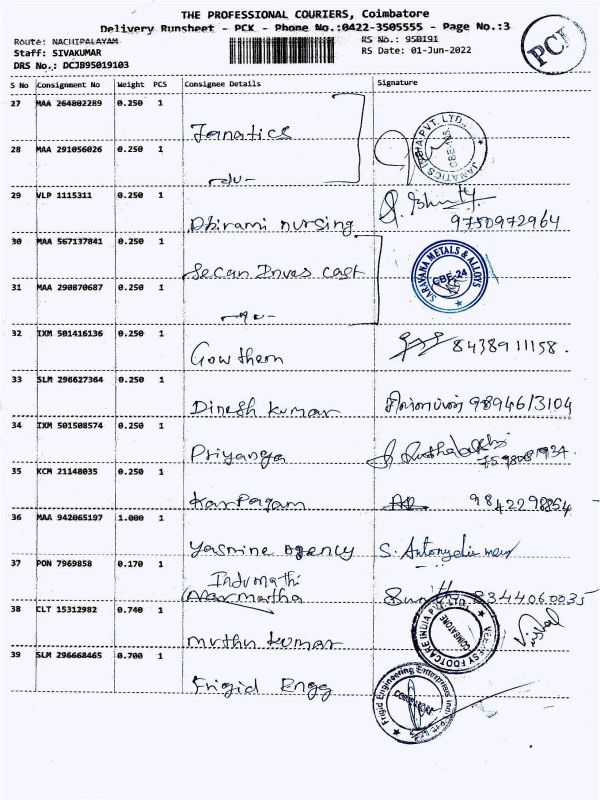 THE PROFESSIONAL COURIERS, Coimbatore
Delivery Runsheet - PCK - Phone No.:0422-3505555 - Page No.:3
Route: NACHIPALAYAM
RS No.: 950191
Staff: SIVAKUMAR
RS Date: 01-Jun-2022
DRS No.: DCJB95019103
PCI
S No Consignment No Weight PCS Consignee Details Signature
27 MAA 264802289 0.250 1 Janatics
28 MAA 291056026 0.250 1 -do-
29 VLP 1115311 0.250 1 Abirami nursing 9750972964
30 MAA 567137841 0.250 1 Secan Inves cast
SARAVANA METALS & ALLOYS
CBE-24
31 MAA 290870687 0.250 1
32 IXM 501416136 0.250 1 Gowthem 8438911158.
33 SLM 296627364 0.250 1 Dinesh kumar
34 IXM 501508574 0.250 1 Priyanga
35 KCM 21148035 0.250 1 Karpagam
36 MAA 942065197 1.000 1 Yasmine Agency
37 PON 7969858 0.170 1 Indumathi
8344060035
38 CLT 15312982 0.740 1 Muthu kumar
Vishal
39 SLM 296668465 0.700 1 Frigid Engg